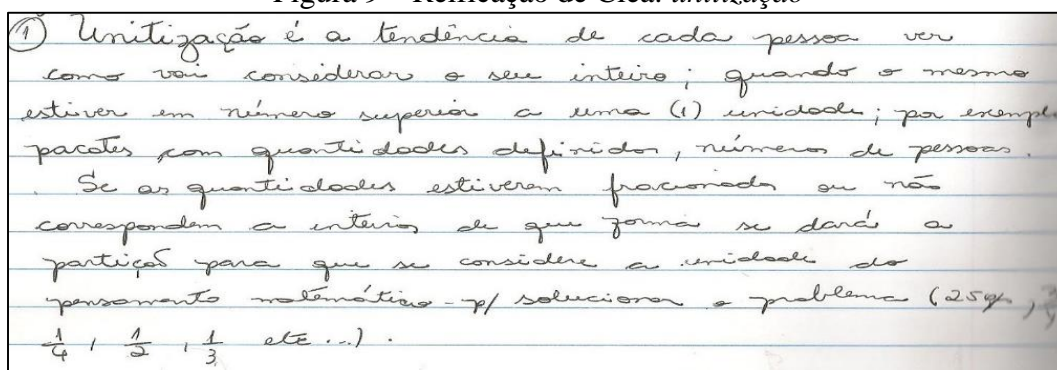 Figura 9 – Reificação de Cica: unitização
① Unitização é a tendência de cada pessoa ver
como vai considerar o seu inteiro; quando o mesmo
estiver em número superior a uma (1) unidade; por exempl
pacotes com quantidades definidos, números de pessoas.
. Se as quantidades estiverem fracionada ou não
correspondem a inteiros de que forma se dará a
partição para que se considere a unidade do
pensamento matemático - p/ solucionar o problema (25%,
1/4, 1/2, 1/3 etc...).